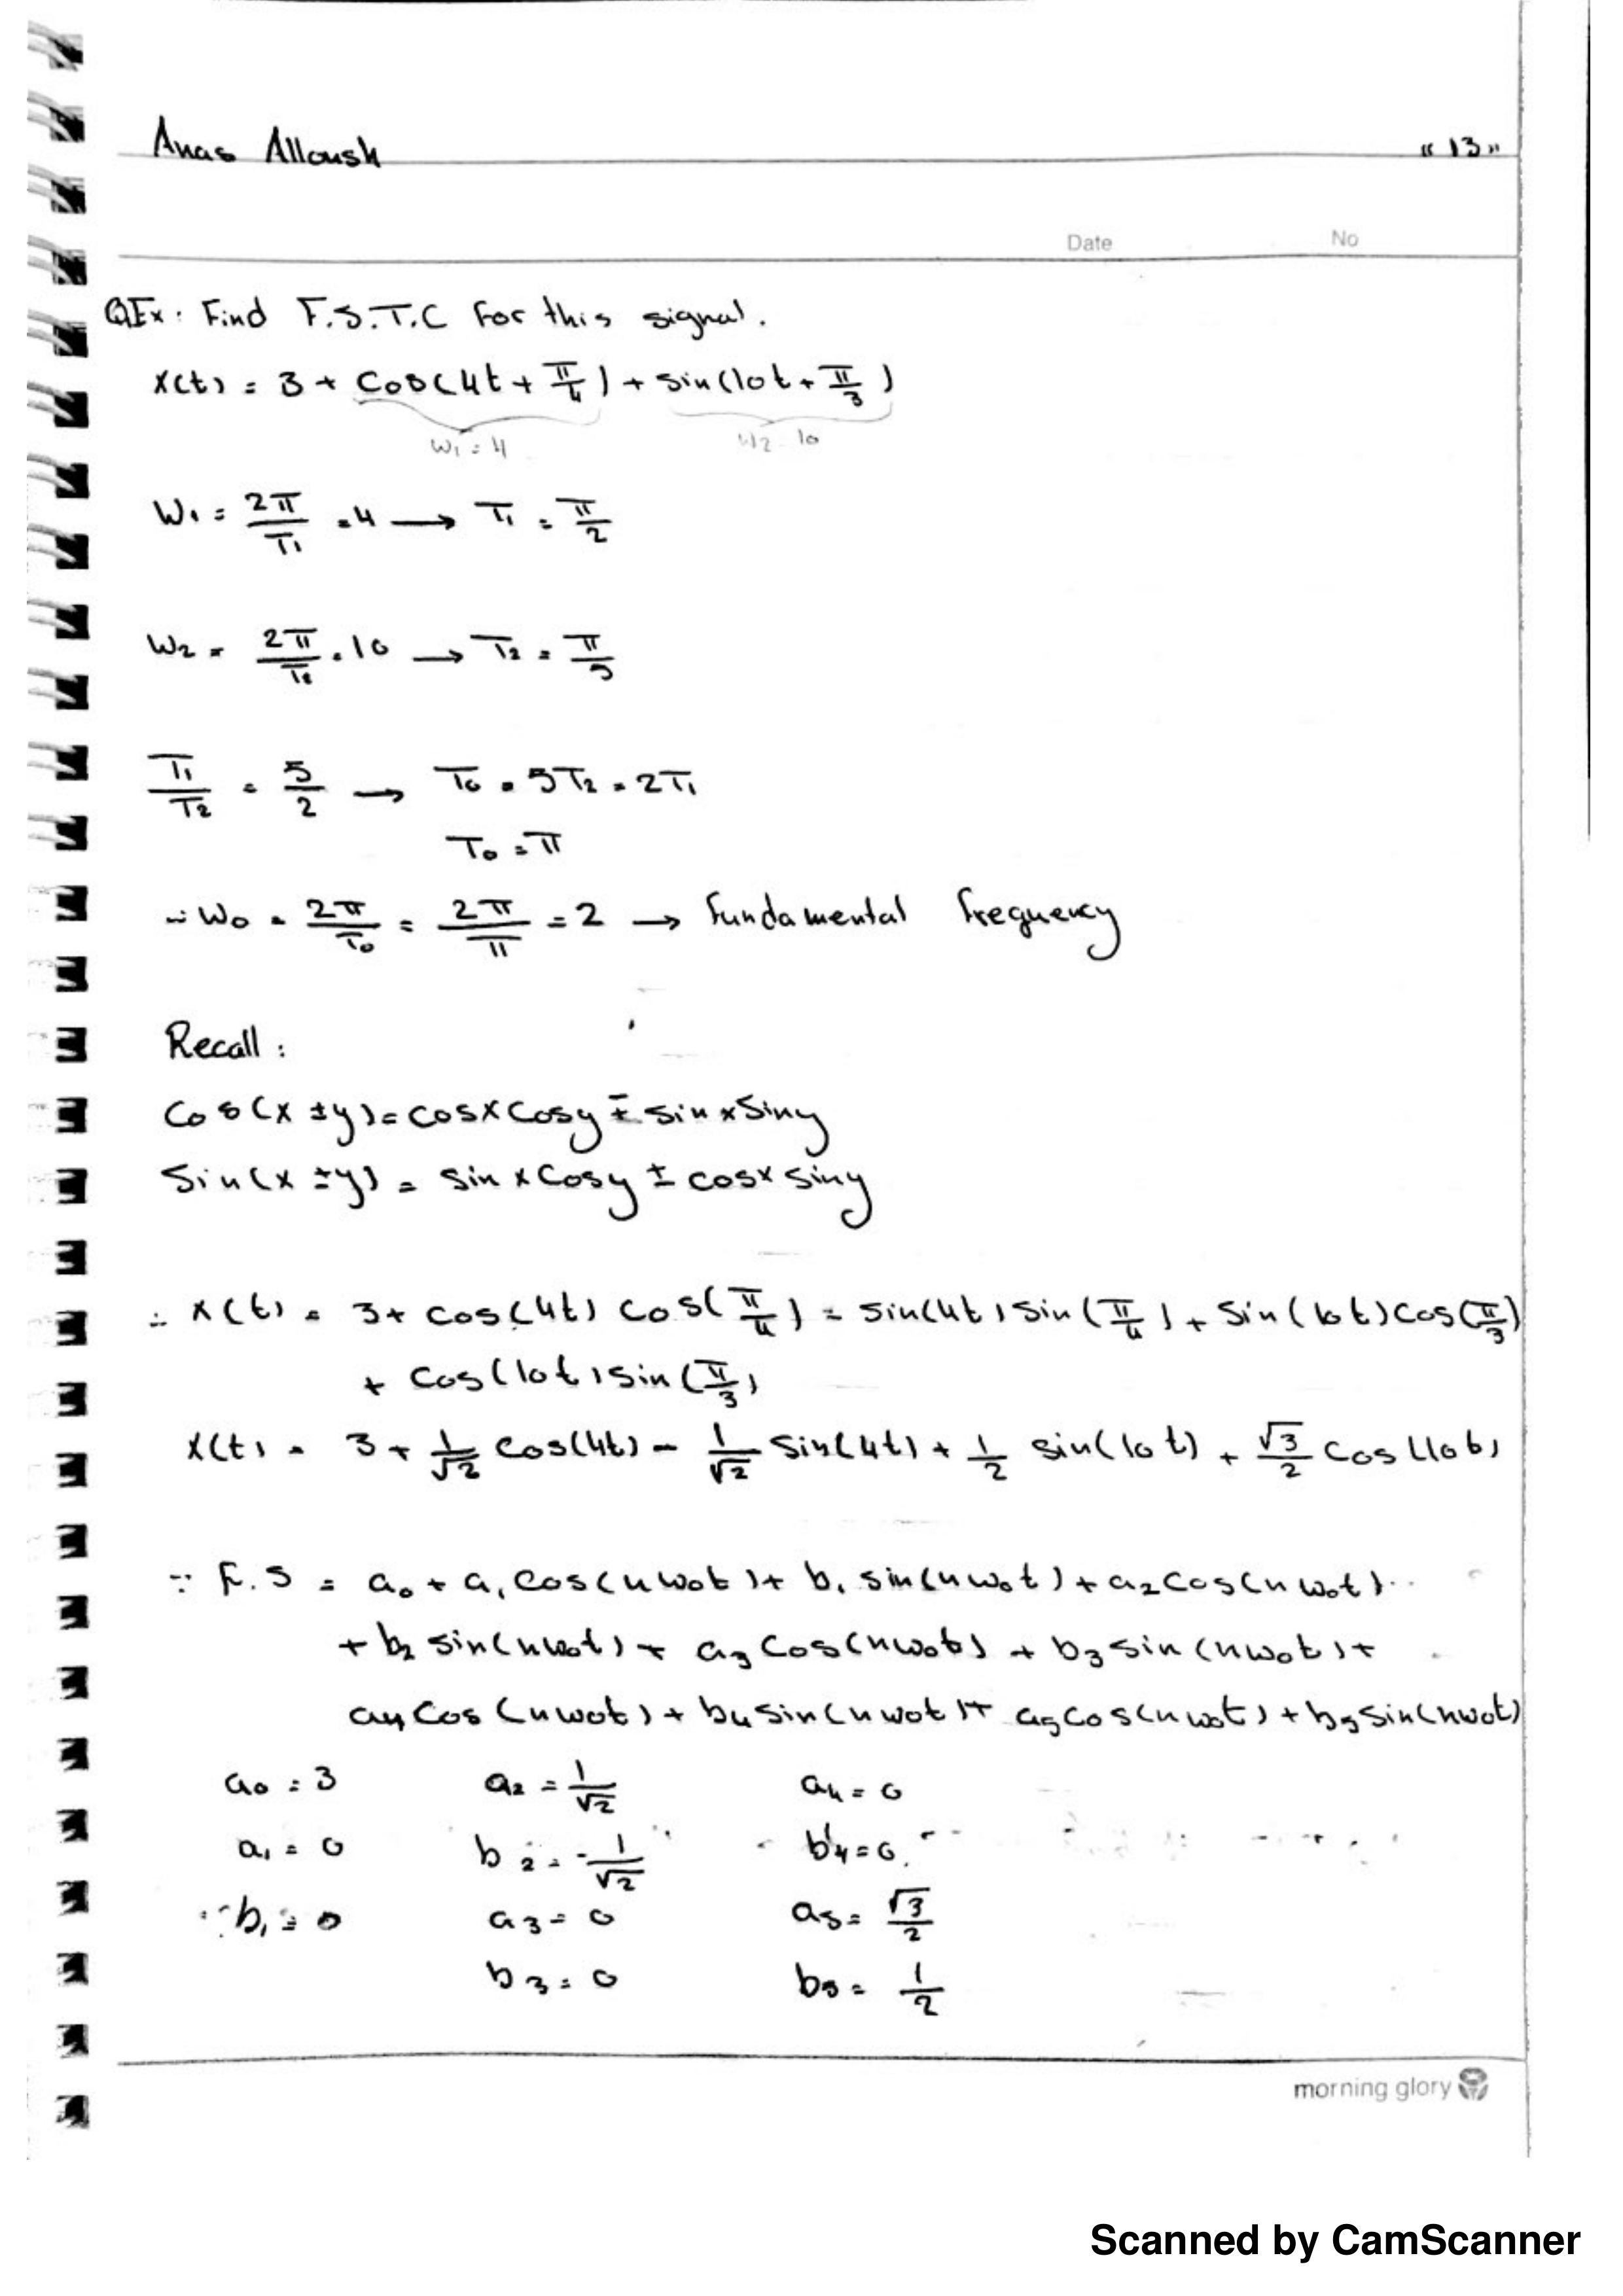 Anas Alloush "13"
Date No
QEx: Find F.S.T.C For this signal.
x(t) = 3 + Cos(4t + π/4) + sin(10t + π/3)
w₁ = 4 w₂ = 10
W₁ = 2π/T₁ = 4 → T₁ = π/2
W₂ = 2π/T₂ = 10 → T₂ = π/5
T₁/T₂ = 5/2 → T₀ = 5T₂ = 2T₁
T₀ = π
∴ W₀ = 2π/T₀ = 2π/π = 2 → fundamental frequency
Recall :
Cos(x ± y) = cosx cosy ∓ sinx siny
Sin(x ± y) = sinx cosy ± cosx siny
∴ x(t) = 3 + cos(4t) cos(π/4) = sin(4t) sin(π/4) + sin(10t) cos(π/3)
+ cos(10t) sin(π/3)
x(t) = 3 + 1/√2 cos(4t) - 1/√2 sin(4t) + 1/2 sin(10t) + √3/2 cos(10t)
∵ F.S = a₀ + a₁ cos(nw₀t) + b₁ sin(nw₀t) + a₂ cos(nw₀t)..
+ b₂ sin(nw₀t) + a₃ cos(nw₀t) + b₃ sin(nw₀t) +
a₄ cos(nw₀t) + b₄ sin(nw₀t) + a₅ cos(nw₀t) + b₅ sin(nw₀t)
a₀ = 3 a₂ = 1/√2 a₄ = 0
a₁ = 0 b₂ = -1/√2 b₄ = 0
b₁ = 0 a₃ = 0 a₅ = √3/2
b₃ = 0 b₅ = 1/2
morning glory
Scanned by CamScanner